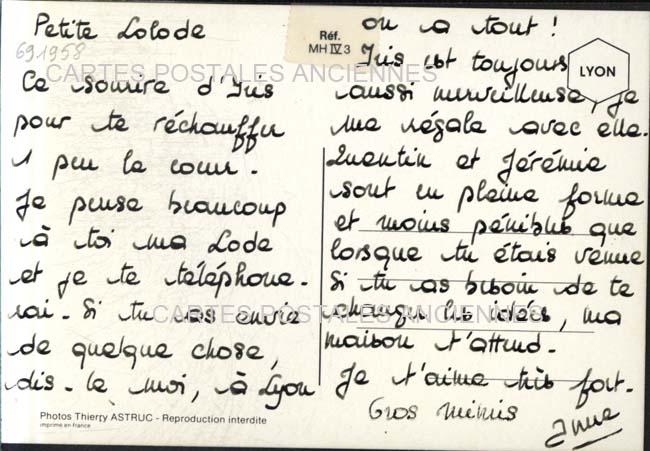 Petite Lolode
691958
Ce sourire d'Iris
pour te réchauffer
1 peu le coeur.
Je pense beaucoup
à toi ma Lode
et je te téléphone-
rai. Si tu as envie
de quelque chose,
dis-le moi, à Lyon
Photos Thierry ASTRUC - Reproduction interdite
imprimé en France
Réf.
MH IV 3
LYON
on a tout !
Iris est toujours
aussi merveilleuse, je
me régale avec elle.
Quentin et Jérémie
sont en pleine forme
et moins pénibles que
lorsque tu étais venue
Si tu as besoin de te
changer les idées, ma
maison t'attend.
Je t'aime très fort.
Gros mimis
Anne
CARTES POSTALES ANCIENNES
CARTES POSTALES ANCIENNES